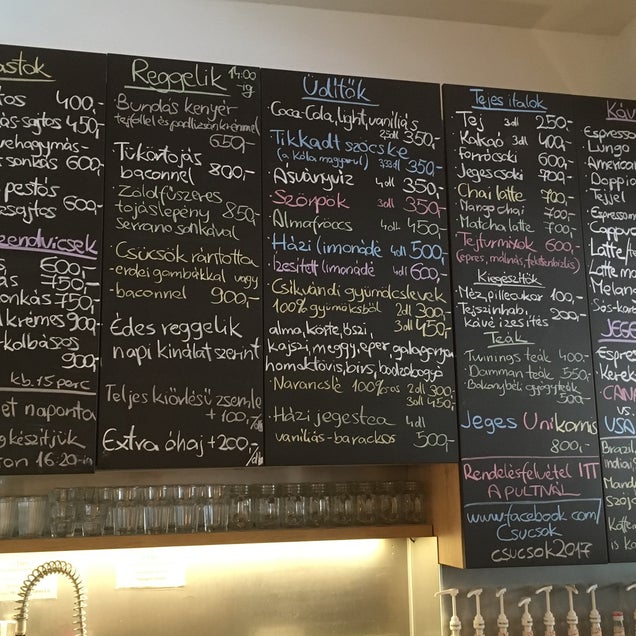 400,-
-sajtos 450,-
600,-
pestós
sajtos 600,-
600,-
750,-
sonkás 750,-
krémes 900,-
-kolbászos
900,-
kb. 15 perc
naponta
készítjük
16:20-ig
Reggelik 14:00
-ig
Bundás kenyér
tejföllel és padlizsánkrémmel
650,-
Tükörtojás
baconnel 800,-
Zöldfűszeres
tojáslepény 850,-
serrano sonkával
Csücsök rántotta
-erdei gombákkal vagy
-baconnel 900,-
Édes reggelik
napi kínálat szerint
Teljes kiőrlésű zsemle
+100,-/db
Extra óhaj +200,-/db
Üdítők
Coca-Cola, light, vaniliás
2,5dl 350,-
Tikkadt szöcske
(a kóla magyarul) 3,33dl 350,-
Ásványvíz 4dl 350,-
Szörpök 3dl 350,-
Almafröccs 4dl 450,-
Házi limonádé 4dl 500,-
Ízesített limonádé 4dl 600,-
Csíkvándi gyümölcslevek
100% gyümölcsből 2dl 300,-
3dl 450,-
alma, körte, őszi,
kajszi, meggy, eper, galagonya
homoktövis, birs, bodzabogyó
Narancslé 100%-os 2dl 300,-
3dl 450,-
Házi jegestea 4dl
vaniliás-barackos 500,-
Tejes italok
Tej 3dl 250,-
Kakaó 3dl 400,-
Forrócsoki 600,-
Jegescsoki 700,-
Chai latte 700,-
Mangochai 700,-
Matcha latte 700,-
Tejturmixok 600,-
(epres, málnás, feketeribizlis)
Kiegészítők
Méz, pillecukor 100,-
Tejszínhab,
kávé ízesítés 200,-
Teák
Twinings teák 400,-
Damman teák 550,-
Bakonybéli gyógyteák
500,-
Jeges Unikornis
800,-
Rendelésfelvétel ITT
A PULTNÁL
www.facebook.com/
Csucsok
csucsok2017
Káv
Espresso
Lungo
America
Doppio
Tejjel
Espresso
Cappuc
Latte/
Latte m
Melan
Sós-kar
JEGE
Espre
Kerek
CANA
vs
USA
Brazil,
India,
Mand
Szój
Koffein
is k